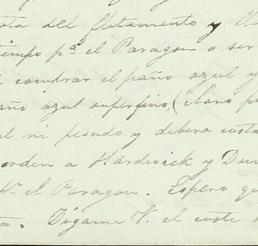 ota del fletamento y
tiempo pª el Paragon a ser
comprar el paño azul y
azul superfino (claro
ni pesado y debera costa
orden a Hardwick y Dun
el Paragon. Espero qu
Digame V. el coste